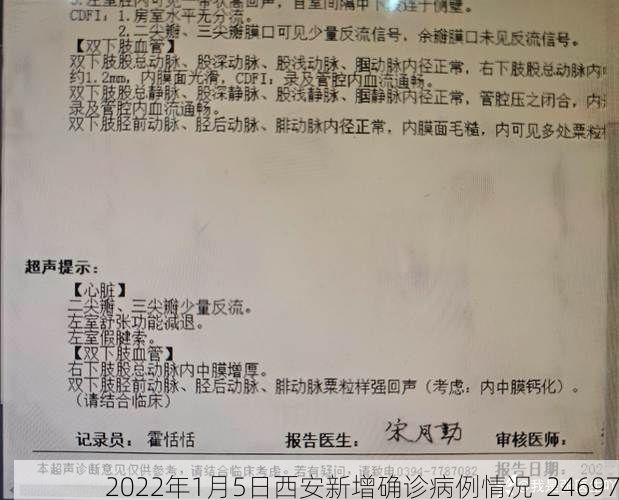 CDFI：1.房室水平无分流。
2.二尖瓣、三尖瓣膜口可见少量反流信号，余瓣膜口未见反流信号。
【双下肢血管】
双下肢股总动脉、股深动脉、股浅动脉、腘动脉内径正常，右下肢股总动脉内
约1.2mm，内膜面光滑，CDFI：录及管腔内血流通畅。
双下肢股总静脉、股深静脉、股浅静脉、腘静脉内径正常，管腔压之闭合，内
录及管腔内血流通畅。
双下肢胫前动脉、胫后动脉、腓动脉内径正常，内膜面毛糙，内可见多处粟粒样
超声提示：
【心脏】
二尖瓣、三尖瓣少量反流。
左室舒张功能减退。
左室假腱索。
【双下肢血管】
右下肢股总动脉内中膜增厚。
双下肢胫前动脉、胫后动脉、腓动脉粟粒样强回声（考虑：内中膜钙化）。
（请结合临床）
记录员：霍恬恬 报告医生：宋月勤 审核医师：
本超声诊断意见仅供参考，请结合临床考虑。若有疑问，请致电0394-7787082 报告日期：202
2022年1月5日西安新增确诊病例情况_24697